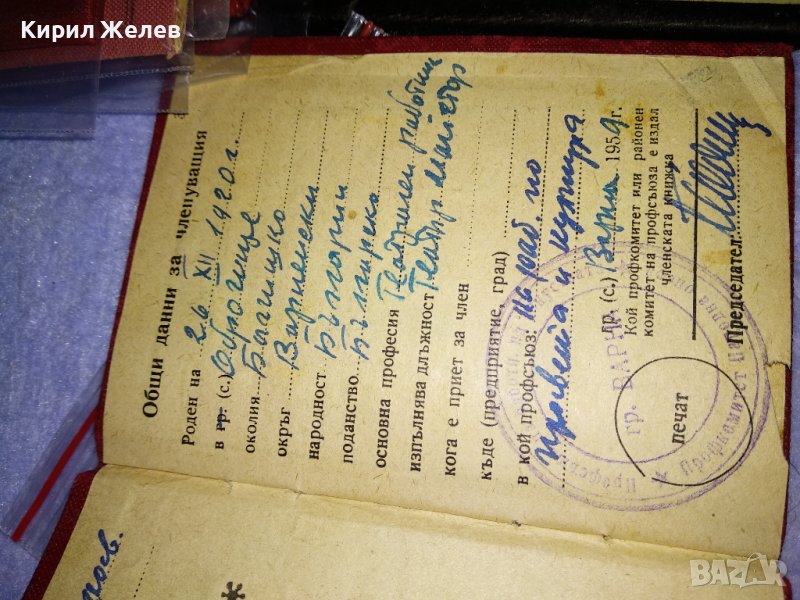 Кирил Желев
Общи данни за членуващия
Роден на 26 XII 1920 г.
в гр. (с.) Оброчище
околия Балчишко
окръг Варненски
народност Българин
поданство Българско
основна професия Театрален работник
изпълнява длъжност Театър майстор
кога е приет за член
къде (предприятие, град)
в кой профсъюз: по
просвета и култура
гр. (с.) Варна 1959 г.
Кой профкомитет или районен
комитет на профсъюза е издал
членската книжка
Председател:
печат
гр. ВАРНА
Профкомитет Народна
BAZAR